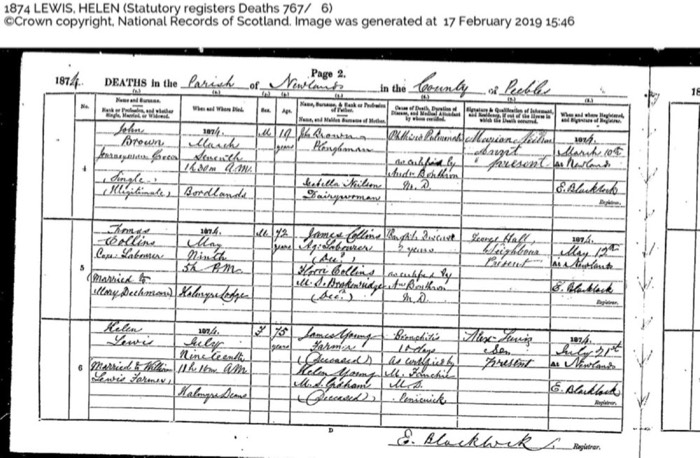 1874 LEWIS, HELEN (Statutory registers Deaths 767/ 6)
©Crown copyright, National Records of Scotland. Image was generated at 17 February 2019 15:46
Page 2.
1874. DEATHS in the Parish of Newlands in the County of Peebles
No. Name and Surname. When and Where Died. Sex. Age.
Rank or Profession, and whether Single, Married, or Widowed.
Name, Surname, & Rank or Profession of Father.
Name, and Maiden Surname of Mother.
Cause of Death, Duration of Disease, and Medical Attendant by whom certified.
Signature & Qualification of Informant, and Residence, if out of the House in which the Death occurred.
When and where Registered, and Signature of Registrar.
4
John
Brown
Journeyman Grocer
(Single)
(Illegitimate)
1874.
March
Seventh
1h 30m A.M.
Bordlands
M 19 years
John Brown
Ploughman
Isabella Neilson
Dairywoman
Phthisis Pulmonalis
as certified by
M.D.
Marion
Aunt
present
1874.
March 10th
At Newlands
E. Blacklock
Registrar.
5
Thomas
Collins
Labourer
(Married to
1874.
May
Ninth
5h A.M.
Halmyre Lodge
M. 72 years
James Collins
Ag. Labourer
(Dec.)
Collins
M.S.
(Dec.)
2 years
as certified by
M.D.
George Hall,
Neighbour
Present
1874.
May 12th
At Newlands
E. Blacklock
Registrar.
6
Helen
Lewis
Married to William
Lewis Farmer
1874.
July
Nineteenth
11h 10m A.M.
Halmyre Deans
F 75 years
James Young
Farmer
(Deceased)
Helen Young
M.S.
(Deceased)
Bronchitis
days
as certified by
Penicuick
Alex. Lewis
Son
Present
1874.
July 21st
At Newlands
E. Blacklock
Registrar.
D
E. Blacklock, Registrar.
18